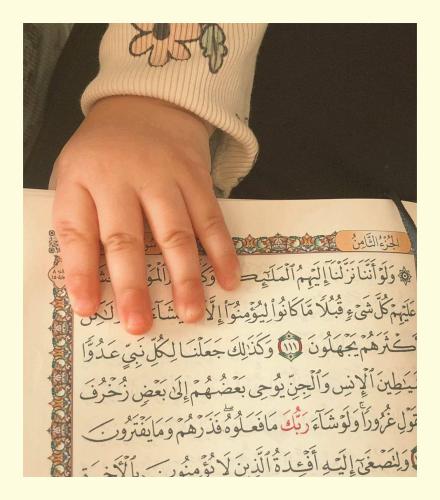 الجُزْءُ الثَّامِنُ
۞ وَلَوْ أَنَّنَا نَزَّلْنَآ إِلَيْهِمُ ٱلْمَلَٰٓئِكَةَ
عَلَيْهِمْ كُلَّ شَىْءٍ قُبُلًا مَّا كَانُوا۟ لِيُؤْمِنُوٓا۟ إِلَّآ يَشَآءَ
أَكْثَرَهُمْ يَجْهَلُونَ ١١١ وَكَذَٰلِكَ جَعَلْنَا لِكُلِّ نَبِىٍّ عَدُوًّا
شَيَٰطِينَ ٱلْإِنسِ وَٱلْجِنِّ يُوحِى بَعْضُهُمْ إِلَىٰ بَعْضٍ زُخْرُفَ
ٱلْقَوْلِ غُرُورًا ۚ وَلَوْ شَآءَ رَبُّكَ مَا فَعَلُوهُ ۖ فَذَرْهُمْ وَمَا يَفْتَرُونَ
وَلِتَصْغَىٰٓ إِلَيْهِ أَفْـِٔدَةُ ٱلَّذِينَ لَا يُؤْمِنُونَ بِٱلْـَٔاخِرَةِ